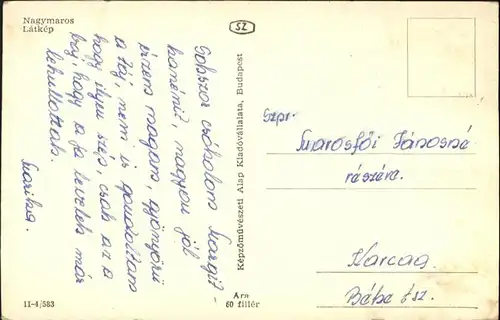 Nagymaros
Látkép
SZ
Sokszor csókolom Margit-
kanénit, nagyon jól
érzem magam, gyönyörű
a táj, nem is gondoltam
hogy ilyen szép, csak az a
baj, hogy a fa levelek már
lehullottak.
Marika.
Képzőművészeti Alap Kiadóvállalata, Budapest
Szpr.
Marosfői Jánosné
részére.
Karcag.
Béke sz.
11-4/583
Ára
60 fillér